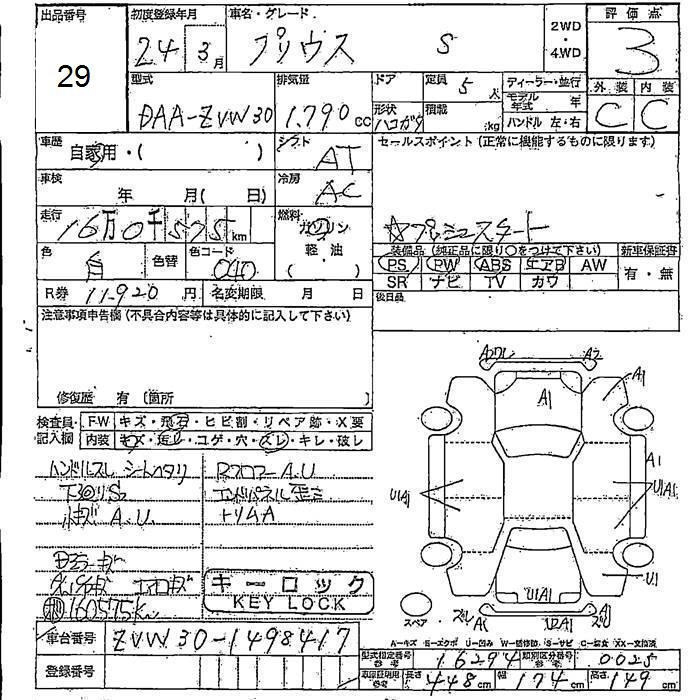 出品番号
29
初度登録年月
24 3月
車名・グレード
プリウス S
2WD
・
4WD
評価点
3
外装 内装
C C
型式
DAA-ZVW30
排気量
1.790 cc
ドア
形状
ハコガタ
定員 5 人
積載 kg
ディーラー・並行
モデル年式 年
ハンドル 左・右
車歴
自家用・( )
シフト
AT
セールスポイント (正常に機能するものに限ります)
☆プッシュスタート
車検
年 月( 日)
冷房
AC
走行
16万0千575km
燃料
ガソリン
軽・油
( )
色
白
色替
色コード
040
装備品 (純正品に限り○をつけて下さい)
新車保証書
PS PW ABS エアB AW
SR ナビ TV カワ
有・無
R券 11.920円
名変期限 月 日
後日品
注意事項申告欄 (不具合内容等は具体的に記入して下さい)
修復歴 有 (箇所 )
検査員記入欄
FW キズ・飛石・ヒビ割・リペア跡・X要
内装 キズ・汚レ・コゲ・穴・スレ・キレ・破レ
ハンドルスレ シートヘタリ
下廻りS2
小キズ A.U.
Rフロアー A.U
エンドパネル歪ミ
トリムA
160575km
キーロック
KEY LOCK
A2ワレ A2
A1
A1
A1
U1A1
U1A1
U1
U1A1
スペア
スレ
A1
U2A1
スレ
A1
A-キズ E-エクボ U-凹み W-補修跡 S-サビ C-腐食 XX-交換済
車台番号
ZVW30-1498417
登録番号
型式指定番号 参考 16294
類別区分番号 参考 0025
車庫証明用 参考 長さ 448cm 幅 174cm 高さ 149cm